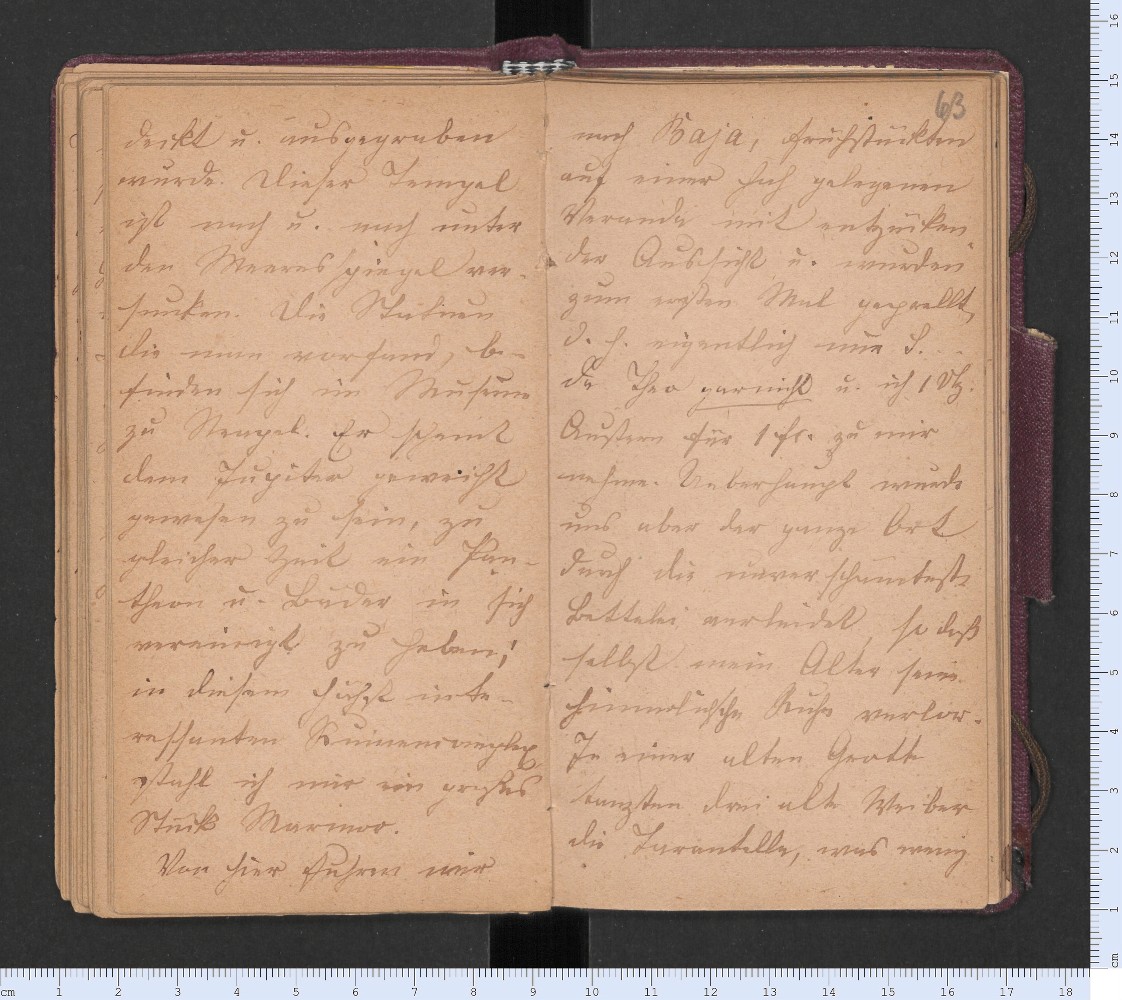 deckt u. ausgegraben
wurde. Dieser Tempel
ist nach u. nach unter
den Meeresspiegel ver-
sunken. Die Statuen
die man vorfand, be-
finden sich im Museum
zu Neapel. Er scheint
dem Jupiter geweiht
gewesen zu sein, zu
gleicher Zeit ein Pan-
theon u. Bäder in sich
vereinigt zu haben;
in diesem höchst inte-
ressanten Ruinencomplex
stahl ich mir ein großes
Stück Marmor.
Von hier fuhren wir
63
nach Baja, frühstückten
auf einer hoch gelegenen
Veranda mit entzücken
der Aussicht u. wurden
zum ersten Mal geprellt,
d. h. eigentlich nur S. ..
da Theo garnicht u. ich 1 Dtz.
Austern für 1 fr. zu mir
nehme. Ueberhaupt wurde
uns aber der ganze Ort
durch die unverschämteste
Bettelei verleidet, so daß
selbst mein Alter seine
himmlische Ruhe verlor.
In einer alten Grotte
tanzten drei alte Weiber
die Tarantella, was wenig